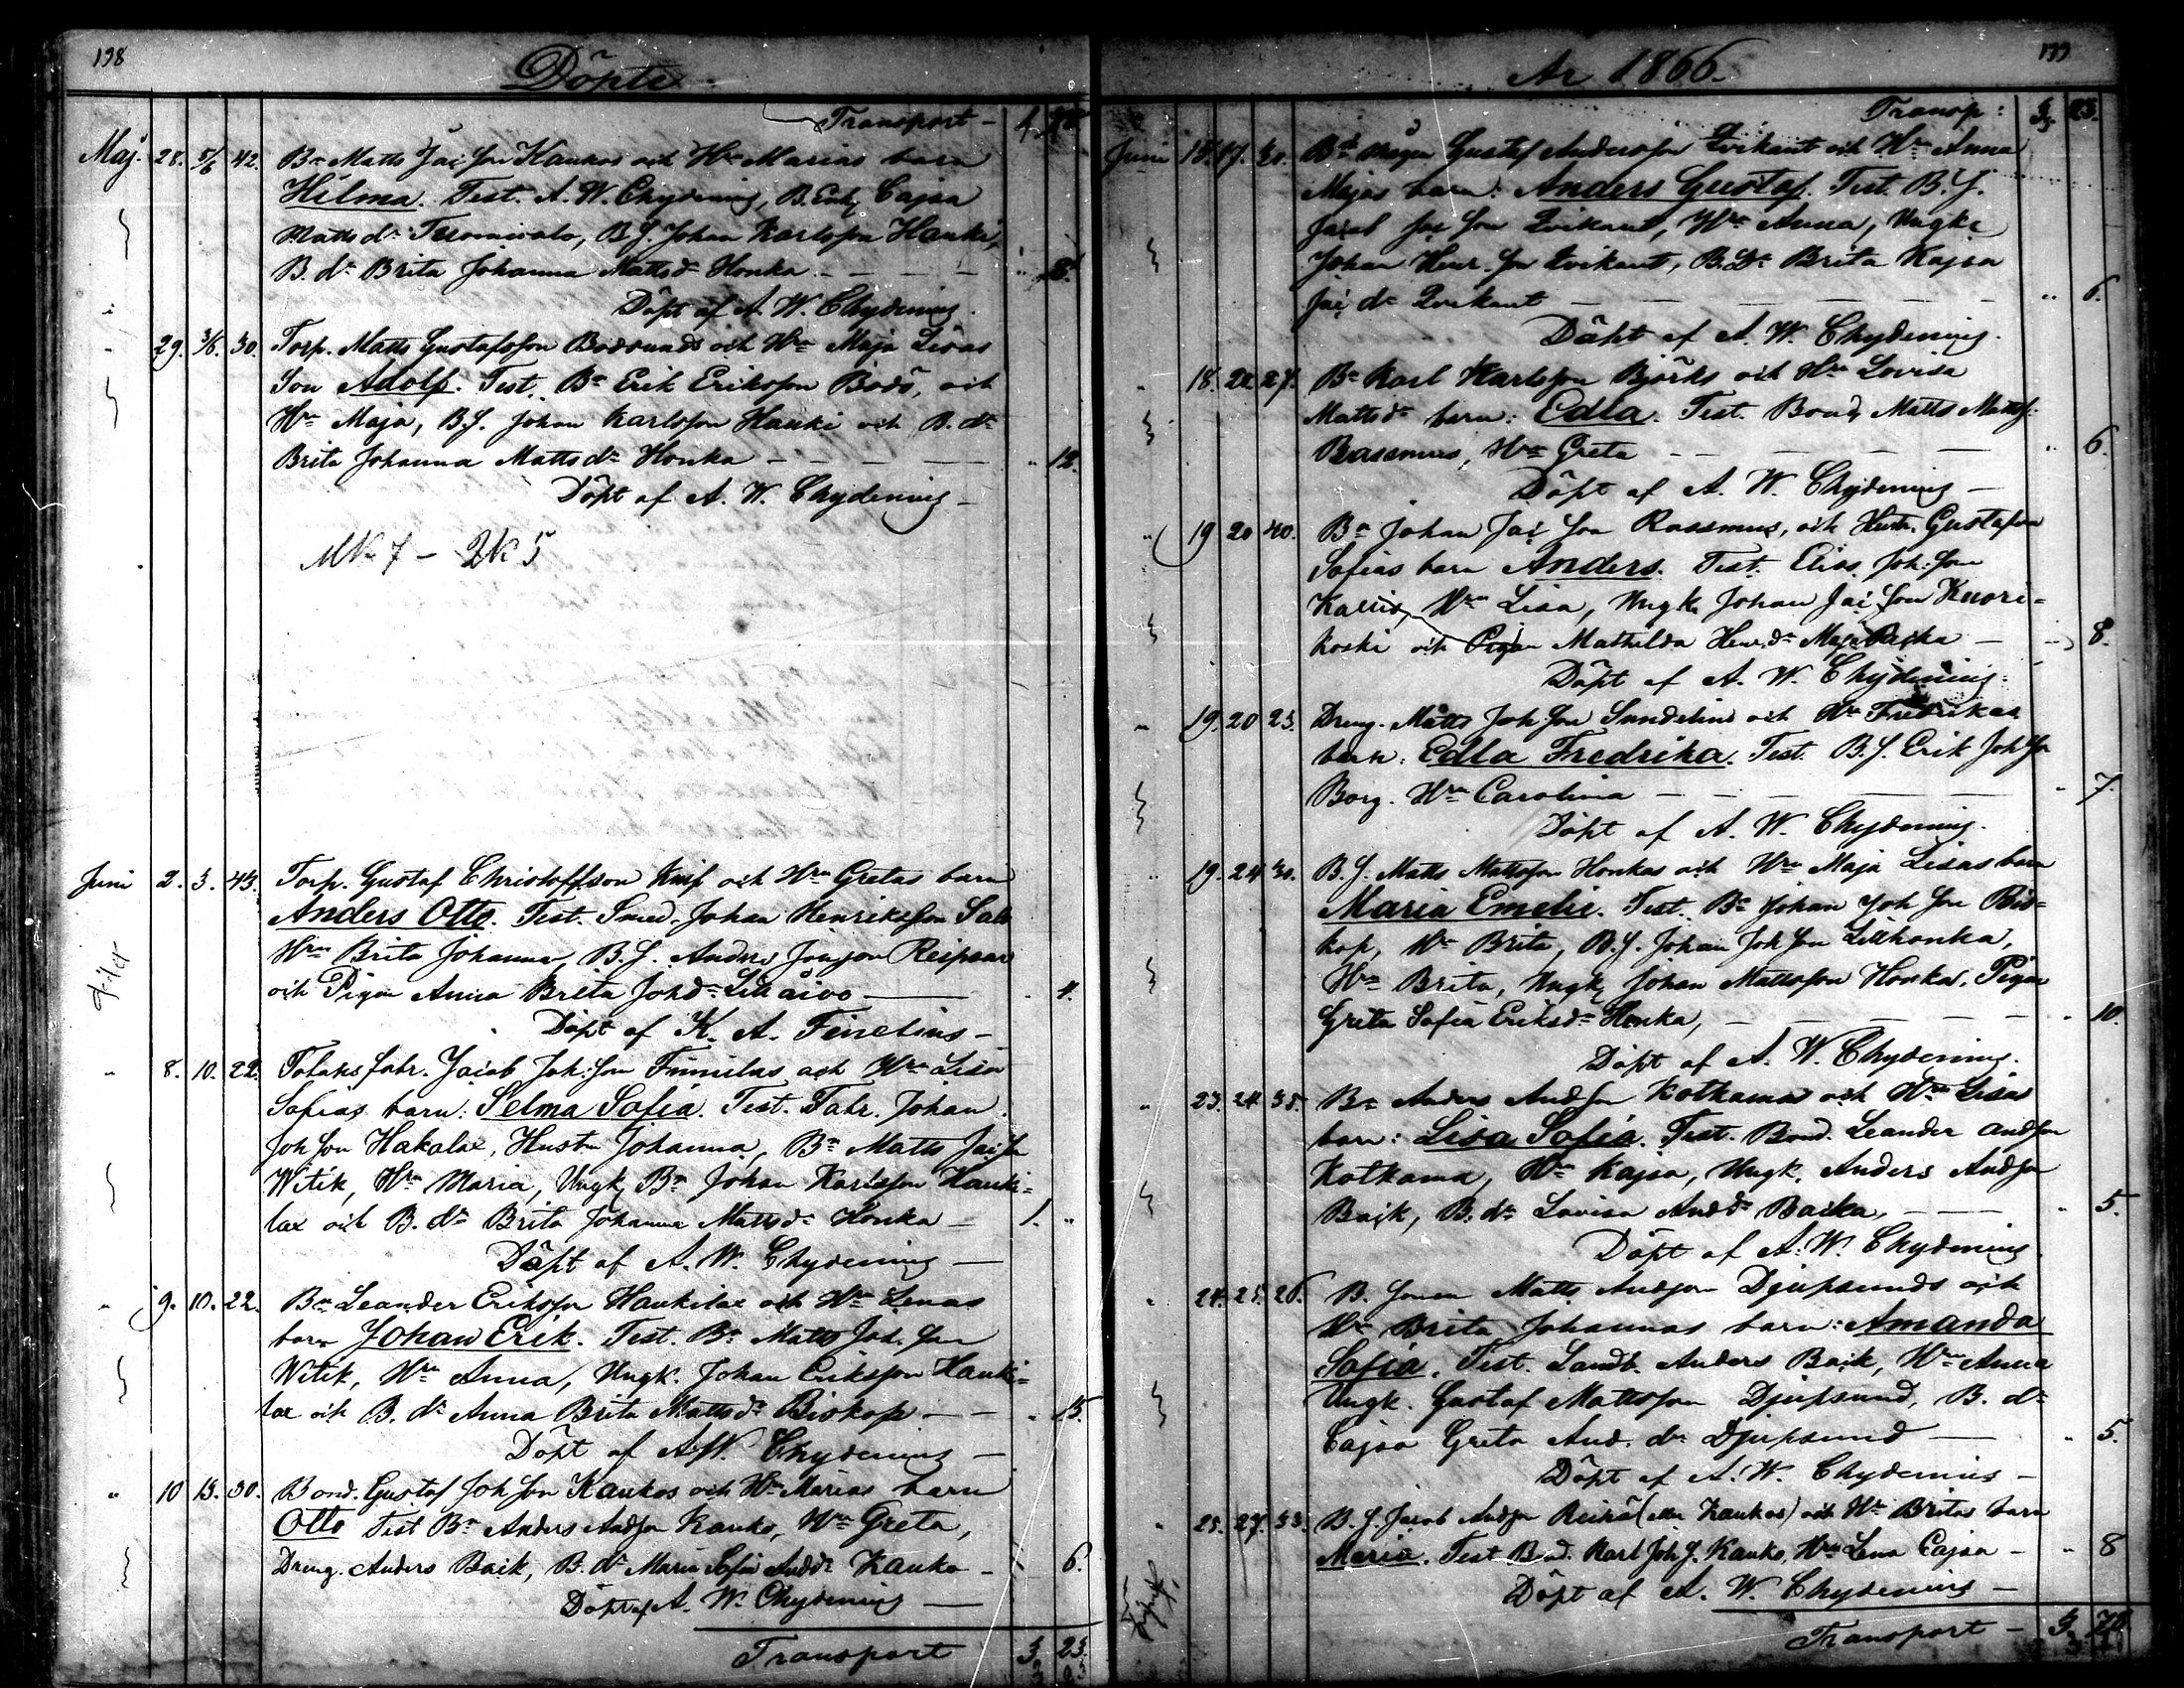 198
Döpte
Transport –
Maj. 28. 5/6 42. Bn Matts Jac Son Kaukos och Hn Marias barn
Hilma. Test. A. W. Chydenius, B. Enk, Cajsa
Matts dr B. S. Johan Karlsson Hauki,
B. dr Brita Johanna Mattsdr Honka – – – 8.
Döpt af A. W. Chydenius.
29. 3/6. 30. Torp. Matts Gustafsson Bodsunds och Hn Maja Lisas
Son Adolf. Test. Bn Erik Eriksson Bodö, och
Hn Maja, B.S. Johan Karlsson Hauki och B. dr
Brita Johanna Mattsdr Honka – – – " 12.
Döpt af A. W. Chydenius –
Mk 7 – Qk 5
Juni 2. 3. 43. Torp. Gustaf Christoffson och Hn Gretas barn
Anders Otto. Test. Smed. Johan Henriksson
Hn Brita Johanna, B.S. Anders Reipsar
och Pigan Anna Brita Johdr – 4.
Döpt af K. A. Fenelius –
" 8. 10. 22. Tobaksfabr. Jacob Joh. Son Finnilas och Hn Lisa
Sofias barn: Selma Sofia. Test. Fabr. Johan
Joh Son Hakalax, Hustr Johanna, Bn Matts Jac Sn
Witik, Hn Maria, Ungk, Bn Johan Karlsson Hauki=
lax och B. dr Brita Johanna Mattsdr Honka – 1. "
Döpt af A. W. Chydenius –
" 9. 10. 22. Bn Leander Eriksson Haukilax och Hn Lenas
barn Johan Erik. Test. Bn Matts Joh. Son
Witik, Hn Anna, Ungk. Johan Eriksson Hauki=
lax och B. dr Anna Brita Mattsdr Biskop – – . 15.
Döpt af A. W. Chydenius –
" 10 13. 30. Bond. Gustaf Joh Son Kaukos och Hn Marias barn
Otto Test Bn Anders Andson Kauko, Hn Greta,
Dreng. Anders Baik, B. dr Maria Sofia Anddr Kauko – 6.
Döpt af A. W. Chydenius –
Transport 3, 23.
199
År 1866.
Transp: 3, 23.
Juni 15. 17. 30. Gustaf Andersson Qvikant och Hn Anna
Majas barn: Anders Gustaf. Test. B.S.
Jacob Jac Son Qvikant, Hn Anna, Ungk
Johan Henr. Son Qvikant, B. Dr Brita Kajsa
Jac dr Qvikant – – – " 6.
Döpt af A. W. Chydenius.
" 18. 22 27. Bn Karl Karlsson Björks och Hn Lovisa
Mattsdr barn: Edla. Test. Bond, Matts Mattss:
Rassmus, Hn Greta – – – " 6.
Döpt af A. W. Chydenius –
" 19 20 40. Bn Johan Jac Son Rassmus, och Hustr. Gustafva
Sofias barn Anders. Test. Elias Joh. Son
Kallis, Hn Lisa, Ungk. Johan Jac Son Kuori=
koski och Pigan Mathilda Henr. dr – " 8.
Döpt af A. W. Chydenius.
" 19. 20 23. Dreng. Matts Joh Son Sundelins och Hn Fredrikas
barn: Edla Fredrika. Test. B.S. Erik Joh Sn
Borg. Hn Carolina – – – " 7.
Döpt af A. W. Chydenius.
" 19. 24 30. B.S. Matts Mattsson Honkas och Hn Maja Lisas barn
Maria Emelie. Test. Bn Johan Joh Son Bis=
kop, Hn Brita, B.S. Johan Joh Son Lillhonka,
Hn Brita, Ungk, Johan Mattsson Honka, Pigan
Greta Sofia Eriksdr Honka, – – – " 10.
Döpt af A. W. Chydenius.
" 23. 24 38. Bn Anders Andson Kotkamas och Hn Lisas
barn: Lisa Sofia. Test. Bond. Leander Andson
Kotkama, Hn Kajsa, Ungk. Anders Andson
Baik, B. dr Lovisa Anddr Baika, – – " 5.
Döpt af A. W. Chydenius
" 24. 25. 26. B. Sonen Matts Andson Djupsunds och
Hn Brita Johannas barn: Amanda
Sofia. Test. Landb. Anders Baik, Hn Anna
Ungk. Gustaf Mattsson Djupsund, B. dr
Cajsa Greta And. dr Djupsund – " 5.
Döpt af A. W. Chydenius –
" 25. 27. 33. B.S. Jacob Andson (eller Kaukos) och Hn Britas barn
Maria. Test Bond. Karl Joh S. Kauko, Hn Lena Cajsa – " 8
Döpt af A. W. Chydenius –
Transport – 3. 78